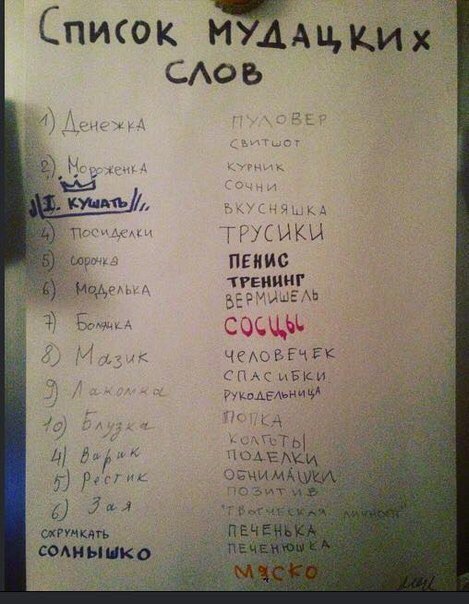 Список мудацких
слов
1) Денежка
2) Мороженка
I. кушать
4) посиделки
5) сорочка
6) моделька
7) Болячка
8) Мазик
9) Лакомка
10) Блузка
4) Варик
5) Ростик
6) Зая
схрумкать
солнышко
пуловер
свитшот
курник
сочни
вкусняшка
трусики
пенис
тренинг
вермишель
сосцы
человечек
спасибки
рукодельница
попка
колготы
поделки
обнимашки
позитив
"творческая личность"
печенька
печенюшка
мяско